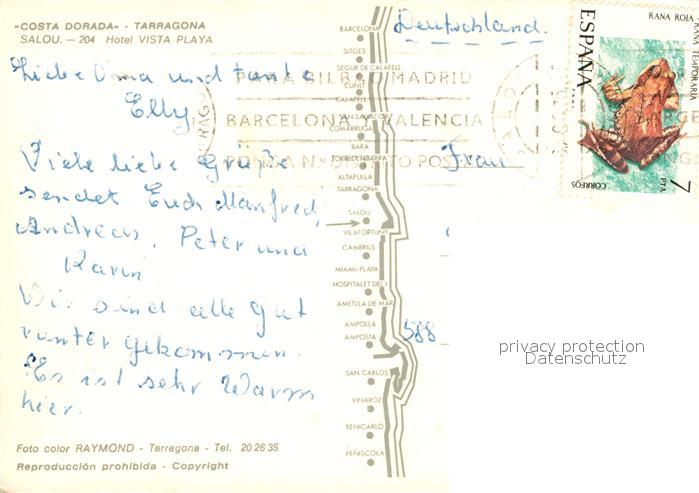 «COSTA DORADA» - TARRAGONA
SALOU. — 204 Hotel VISTA PLAYA
Liebe Oma und Tante
Elly
Viele liebe Grüße
sendet Euch Manfred,
Andreas, Peter und
Karin
Wir sind alle gut
runter gekommen.
Es ist sehr Warm
hier.
Foto color RAYMOND - Tarragona - Tel. 20 26 35
Reproducción prohibida - Copyright
BARCELONA
SITGES
SEGUR DE CALAFELL
CUNIT
CALAFELL
SAN SALVADOR
COMARRUGA
BARA
TORREDEMBARRA
ALTAFULLA
TARRAGONA
SALOU
VILAFORTUNY
CAMBRILS
MIAMI-PLAYA
HOSPITALET DEL I.
AMETLLA DE MAR
AMPOLLA
AMPOSTA
SAN CARLOS
VINAROZ
BENICARLO
PEÑISCOLA
Deutschland.
Frau
588
PARA BILBAO MADRID
BARCELONA VALENCIA
PONGA N.º DISTRITO POSTAL
ESPAÑA
RANA ROJA - RANA TEMPORARIA
CORREOS
7 PTA
privacy protection
Datenschutz